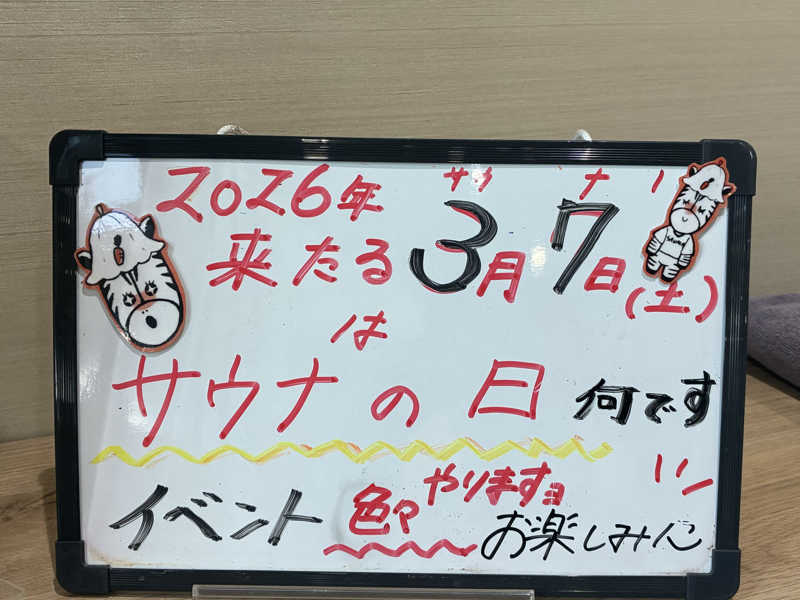 2026年
サウ ナー
来たる3月7日(土)
は
サウナの日 何です
!!
イベント 色々やりますョ
お楽しみに